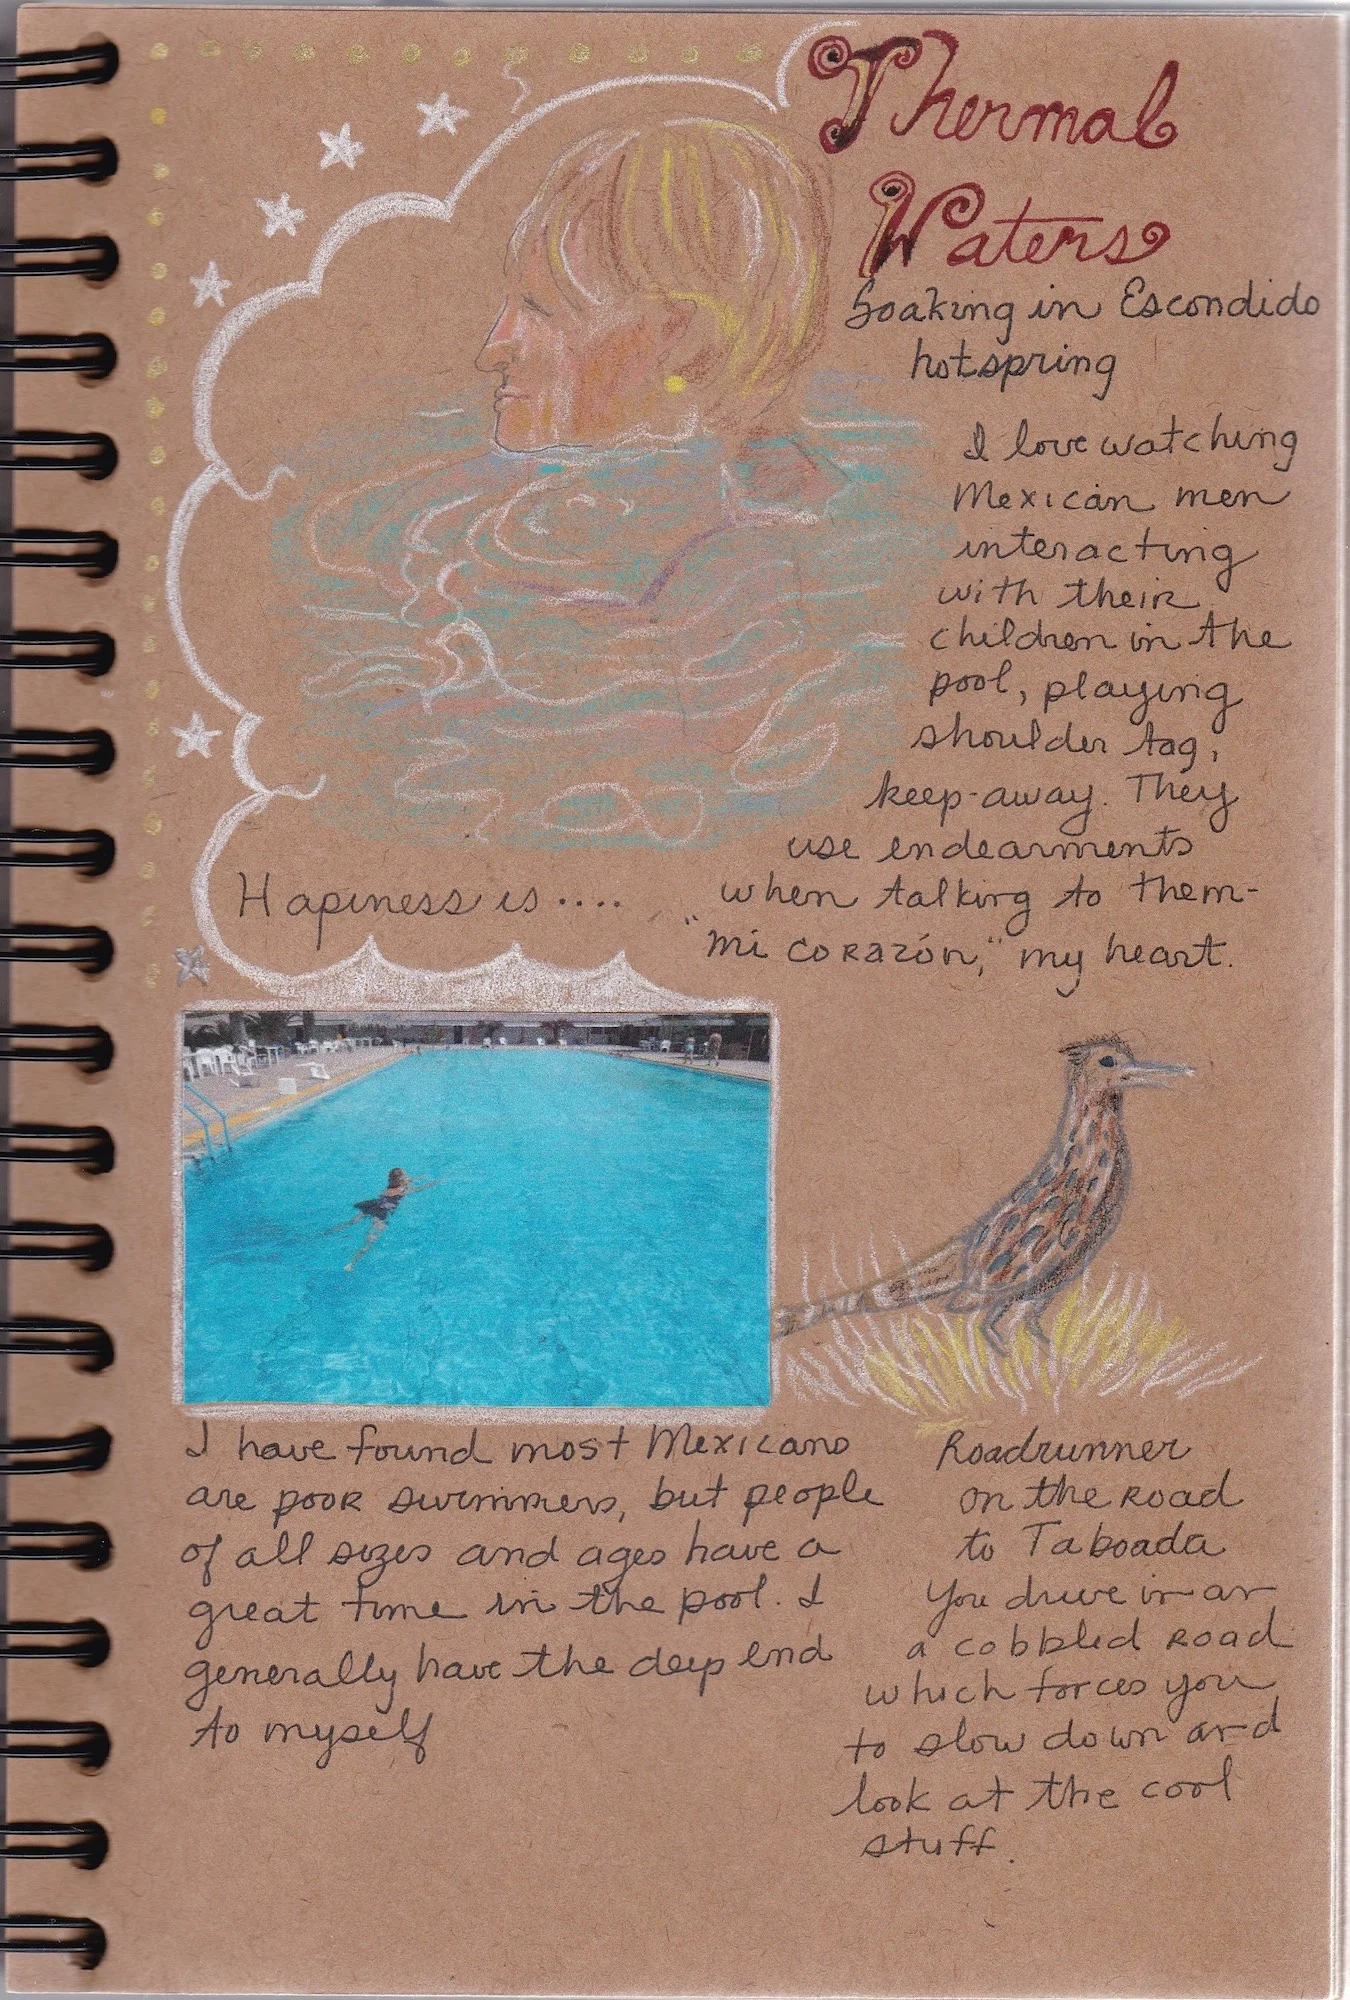 Thermal
Waters
Soaking in Escondido
hotspring
I love watching
Mexican men
interacting
with their
children in the
pool, playing
shoulder tag,
keep-away. They
use endearments
when talking to them-
"mi corazón," my heart.
Hapiness is....
I have found most Mexicans
are poor swimmers, but people
of all sizes and ages have a
great time in the pool. I
generally have the deep end
to myself
Roadrunner
on the road
to Taboada
You drive in on
a cobbled road
which forces you
to slow down and
look at the cool
stuff.